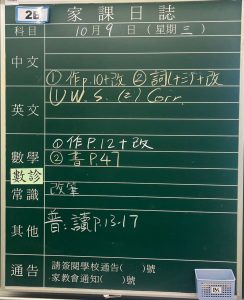 2B
家課日誌
科目 10月9日(星期三)
中文 ①作p.10+改 ②詞(十三)+改
英文 ① W.S. (2) Corr.
數學 ①作P.12+改
②書P47
數診
常識 改筆
其他 普:讀P.13-17
通告 請簽閱學校通告( )號
家教會通知( )號